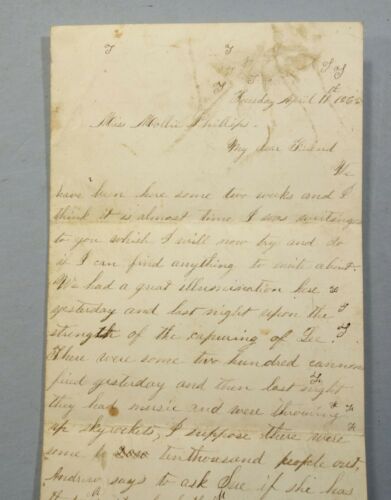 Tuesday April 11th 1865
Miss Mollie Phillips.
My dear Friend
We
have been here some two weeks and I
think it is almost time I was writing
to you which I will now try and do
if I can find anything to write about.
We had a great illumination here
yesterday and last night upon the
strength of the capturing of Lee.
There were some two hundred cannon
fired yesterday and then last night
they had music and were throwing
up skyrockets, I suppose there were
some tenthousand people out,
Andrew says to ask Sue if she has